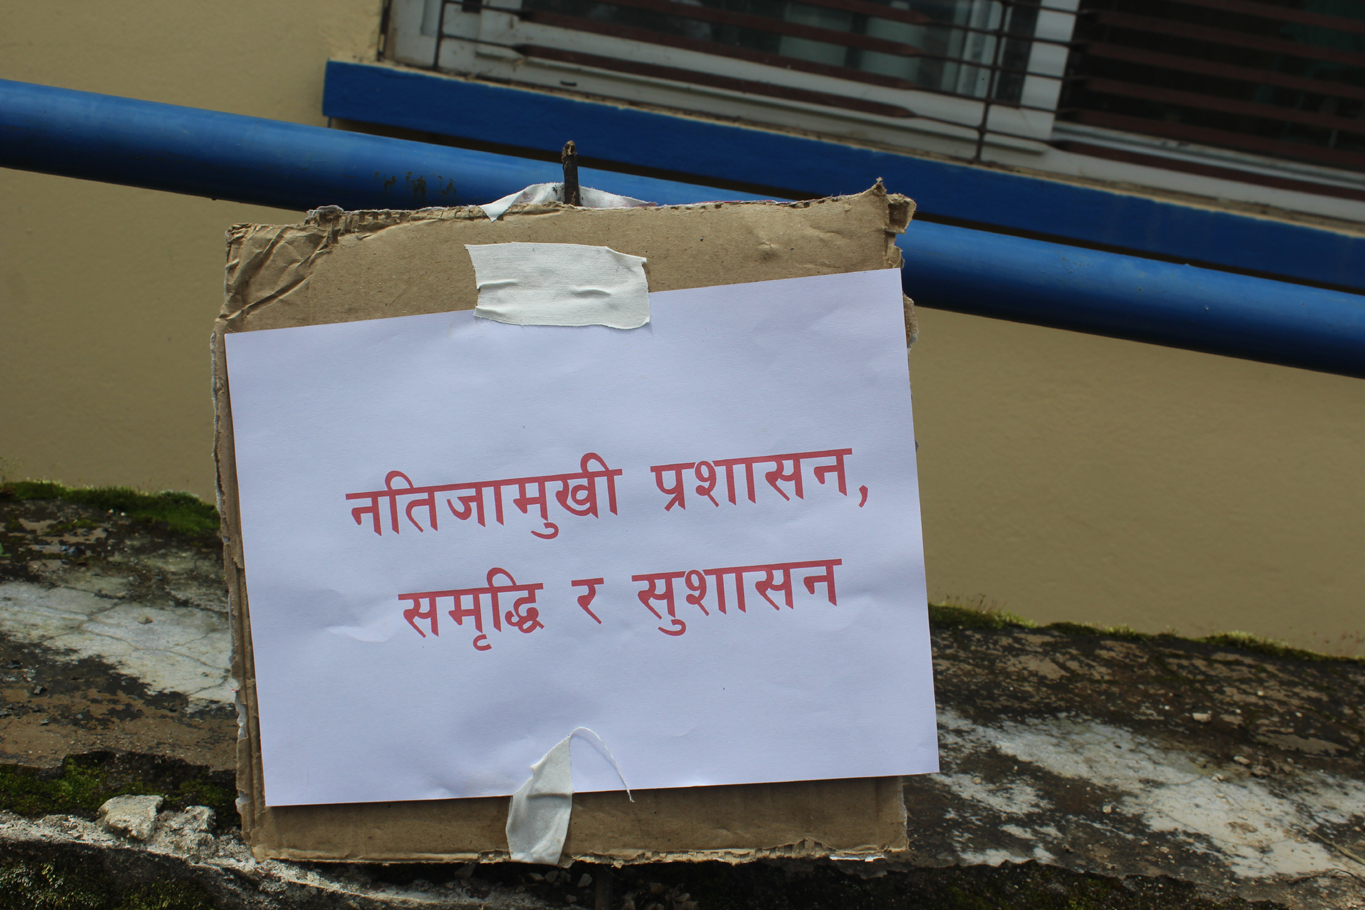 नतिजामुखी प्रशासन,
समृद्धि र सुशासन